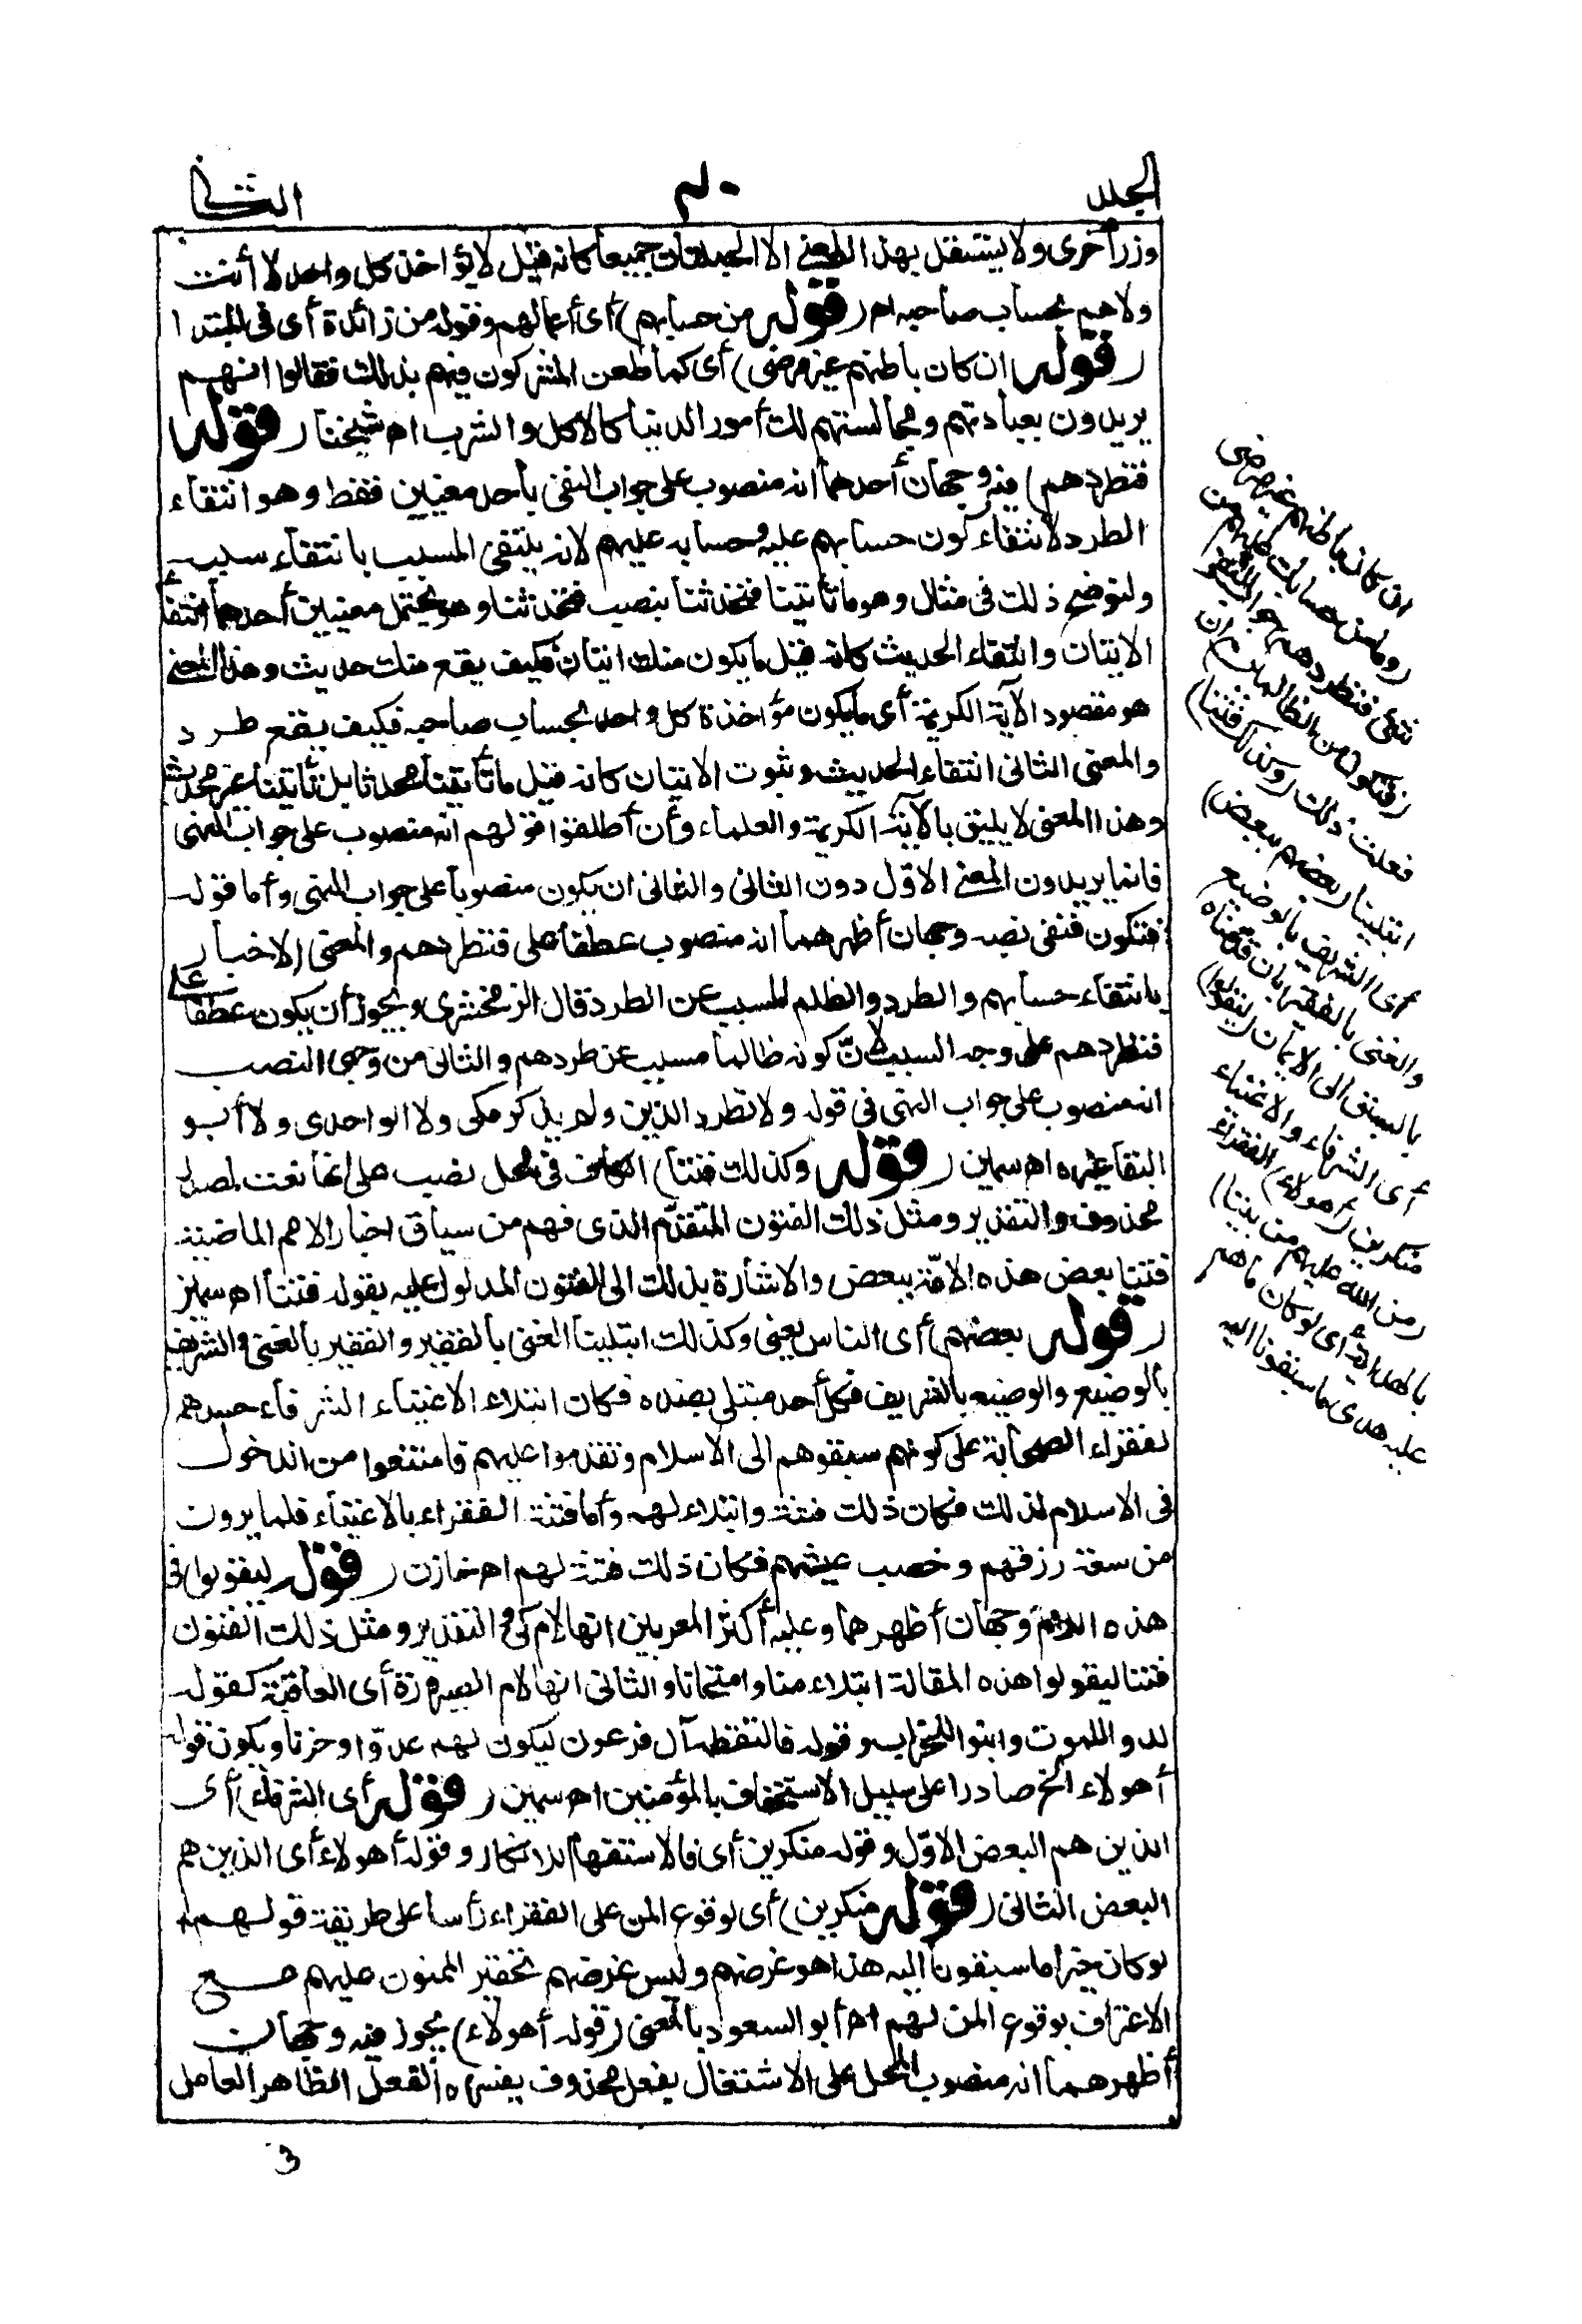 المجلد
٣٠
الثاني
وزر أخرى ولا يستقل بهذا المعنى الا الجملتان جميعا كانه قيل لا يؤاخذ كل واحد لا أنت
ولا هم بحساب صاحبه اه (قوله من حسابهم) أى أعمالهم وقوله من زائدة أى فى المبتدا
(قوله ان كان باطنهم غير مرضى) أى كما طعن المشركون فيهم بذلك فقالوا انهم
يريدون بعبادتهم ومجالستهم لك أمور الدنيا كالاكل والشرب اه شيخنا (قوله
فتطردهم) فيه وجهان أحدهما انه منصوب على جواب النفى بأحد معنيين فقط وهو انتقاء
الطرد لانتفاء كون حسابهم عليه وحسابه عليهم لانه ينتفى المسبب بانتفاء سببه
ولنوضح ذلك فى مثال وهو ما تأتينا فتحدثنا بنصب فتحدثنا وهو يحتمل معنيين أحدهما انتفاء
الاتيان وانتفاء الحديث كانه قيل ما يكون منك اتيان فكيف يقع منك حديث وهذا المعنى
هو مقصود الآية الكريمة أى ما يكون مؤاخذة كل واحد بحساب صاحبه فكيف يقع طرد
والمعنى الثانى انتفاء الحديث وثبوت الاتيان كانه قيل ما تأتينا محدثا بل تأتينا غير محدث
وهذا المعنى لا يليق بالآية الكريمة والعلماء وأن أطلقوا قولهم انه منصوب على جواب النهى
فانما يريدون المعنى الاول دون الثانى والثانى ان يكون منصوبا على جواب النهى وأما قوله
فتكون ففى نصبه وجهان أظهرهما انه منصوب عطفا على فتطردهم والمعنى الاخبار
بانتفاء حسابهم والطرد والظلم المسبب عن الطرد قال الزمخشرى ويجوز أن يكون عطفا على
فتطردهم على وجه السبب لانّ كونه ظالما مسبب عن طردهم والثانى من وجهى النصب
انه منصوب على جواب النهى فى قوله ولا تطرد الذين ولم يذكر مكى ولا الواحدى ولا أبو
البقا غيره اه سمين (قوله وكذلك فتنا) الكاف فى محل نصب على أنها نعت لمصدر
محذوف والتقدير ومثل ذلك الفتون المتقدّم الذى فهم من سياق اخبار الامم الماضية
فتنا بعض هذه الامّة ببعض والاشارة بذلك الى الفتون المدلول عليه بقوله فتنا اه سمين
(قوله بعضهم) أى الناس يعنى وكذلك ابتلينا الغنى بالفقير والفقير بالغنى والشريف
بالوضيع والوضيع بالشريف فكل أحد مبتلى بضده فكان ابتلاء الاغنياء الشرفاء حسدهم
لفقراء الصحابة على كونهم سبقوهم الى الاسلام وتقدموا عليهم فامتنعوا من الدخول
فى الاسلام لذلك فكان ذلك فتنة وابتلاء لهم وأما فتنة الفقراء بالاغنياء فلما يرون
من سعة رزقهم وخصب عيشهم فكان ذلك فتنة لهم اه خازن (قوله ليقولوا) فى
هذه اللام وجهان أظهرهما وعليه أكثر المعربين انها لام كى والتقدير ومثل ذلك الفتون
فتنا ليقولوا هذه المقالة ابتلاء منا وامتحانا والثانى انها لام الصيرورة أى العاقبة كقوله
لدوا للموت وابنوا للخراب وقوله فالتقطه آل فرعون ليكون لهم عدوّا وحزنا ويكون قوله
أهولاء الخ صادرا على سبيل الاستخفاف بالمؤمنين اه سمين (قوله أى الشرفاء) أى
الذين هم البعض الاوّل وقوله منكرين أى فالاستفهام للانكار وقوله أهولاء أى الذين هم
البعض الثانى (قوله منكرين) أى لوقوع المن على الفقراء رأسا على طريقة قولهم
لو كان خيرا ما سبقونا اليه هذا هو غرضهم وليس غرضهم تحقير الممنون عليهم مع
الاعتراف بوقوع المن لهم اه أبو السعود بالمعنى (قوله أهولاء) يجوز فيه وجهان
أظهرهما انه منصوب المحل على الاشتغال بفعل محذوف يفسره الفعل الظاهر العامل
ان كان باطنهم غير مرضى
(وما من حسابك عليهم من
شئ فتطردهم) جواب النفى
(فتكون من الظالمين) ان
فعلت ذلك (وكذلك فتنا)
ابتلينا (بعضهم ببعض)
أى الشريف بالوضيع
والغنى بالفقير بان قدمناه
بالسبق الى الايمان (ليقولوا)
أى الشرفاء والاغنياء
منكرين (أهولاء) الفقراء
(من الله عليهم من بيننا)
بالهداية أى لو كان ما هم
عليه هدى ما سبقونا اليه